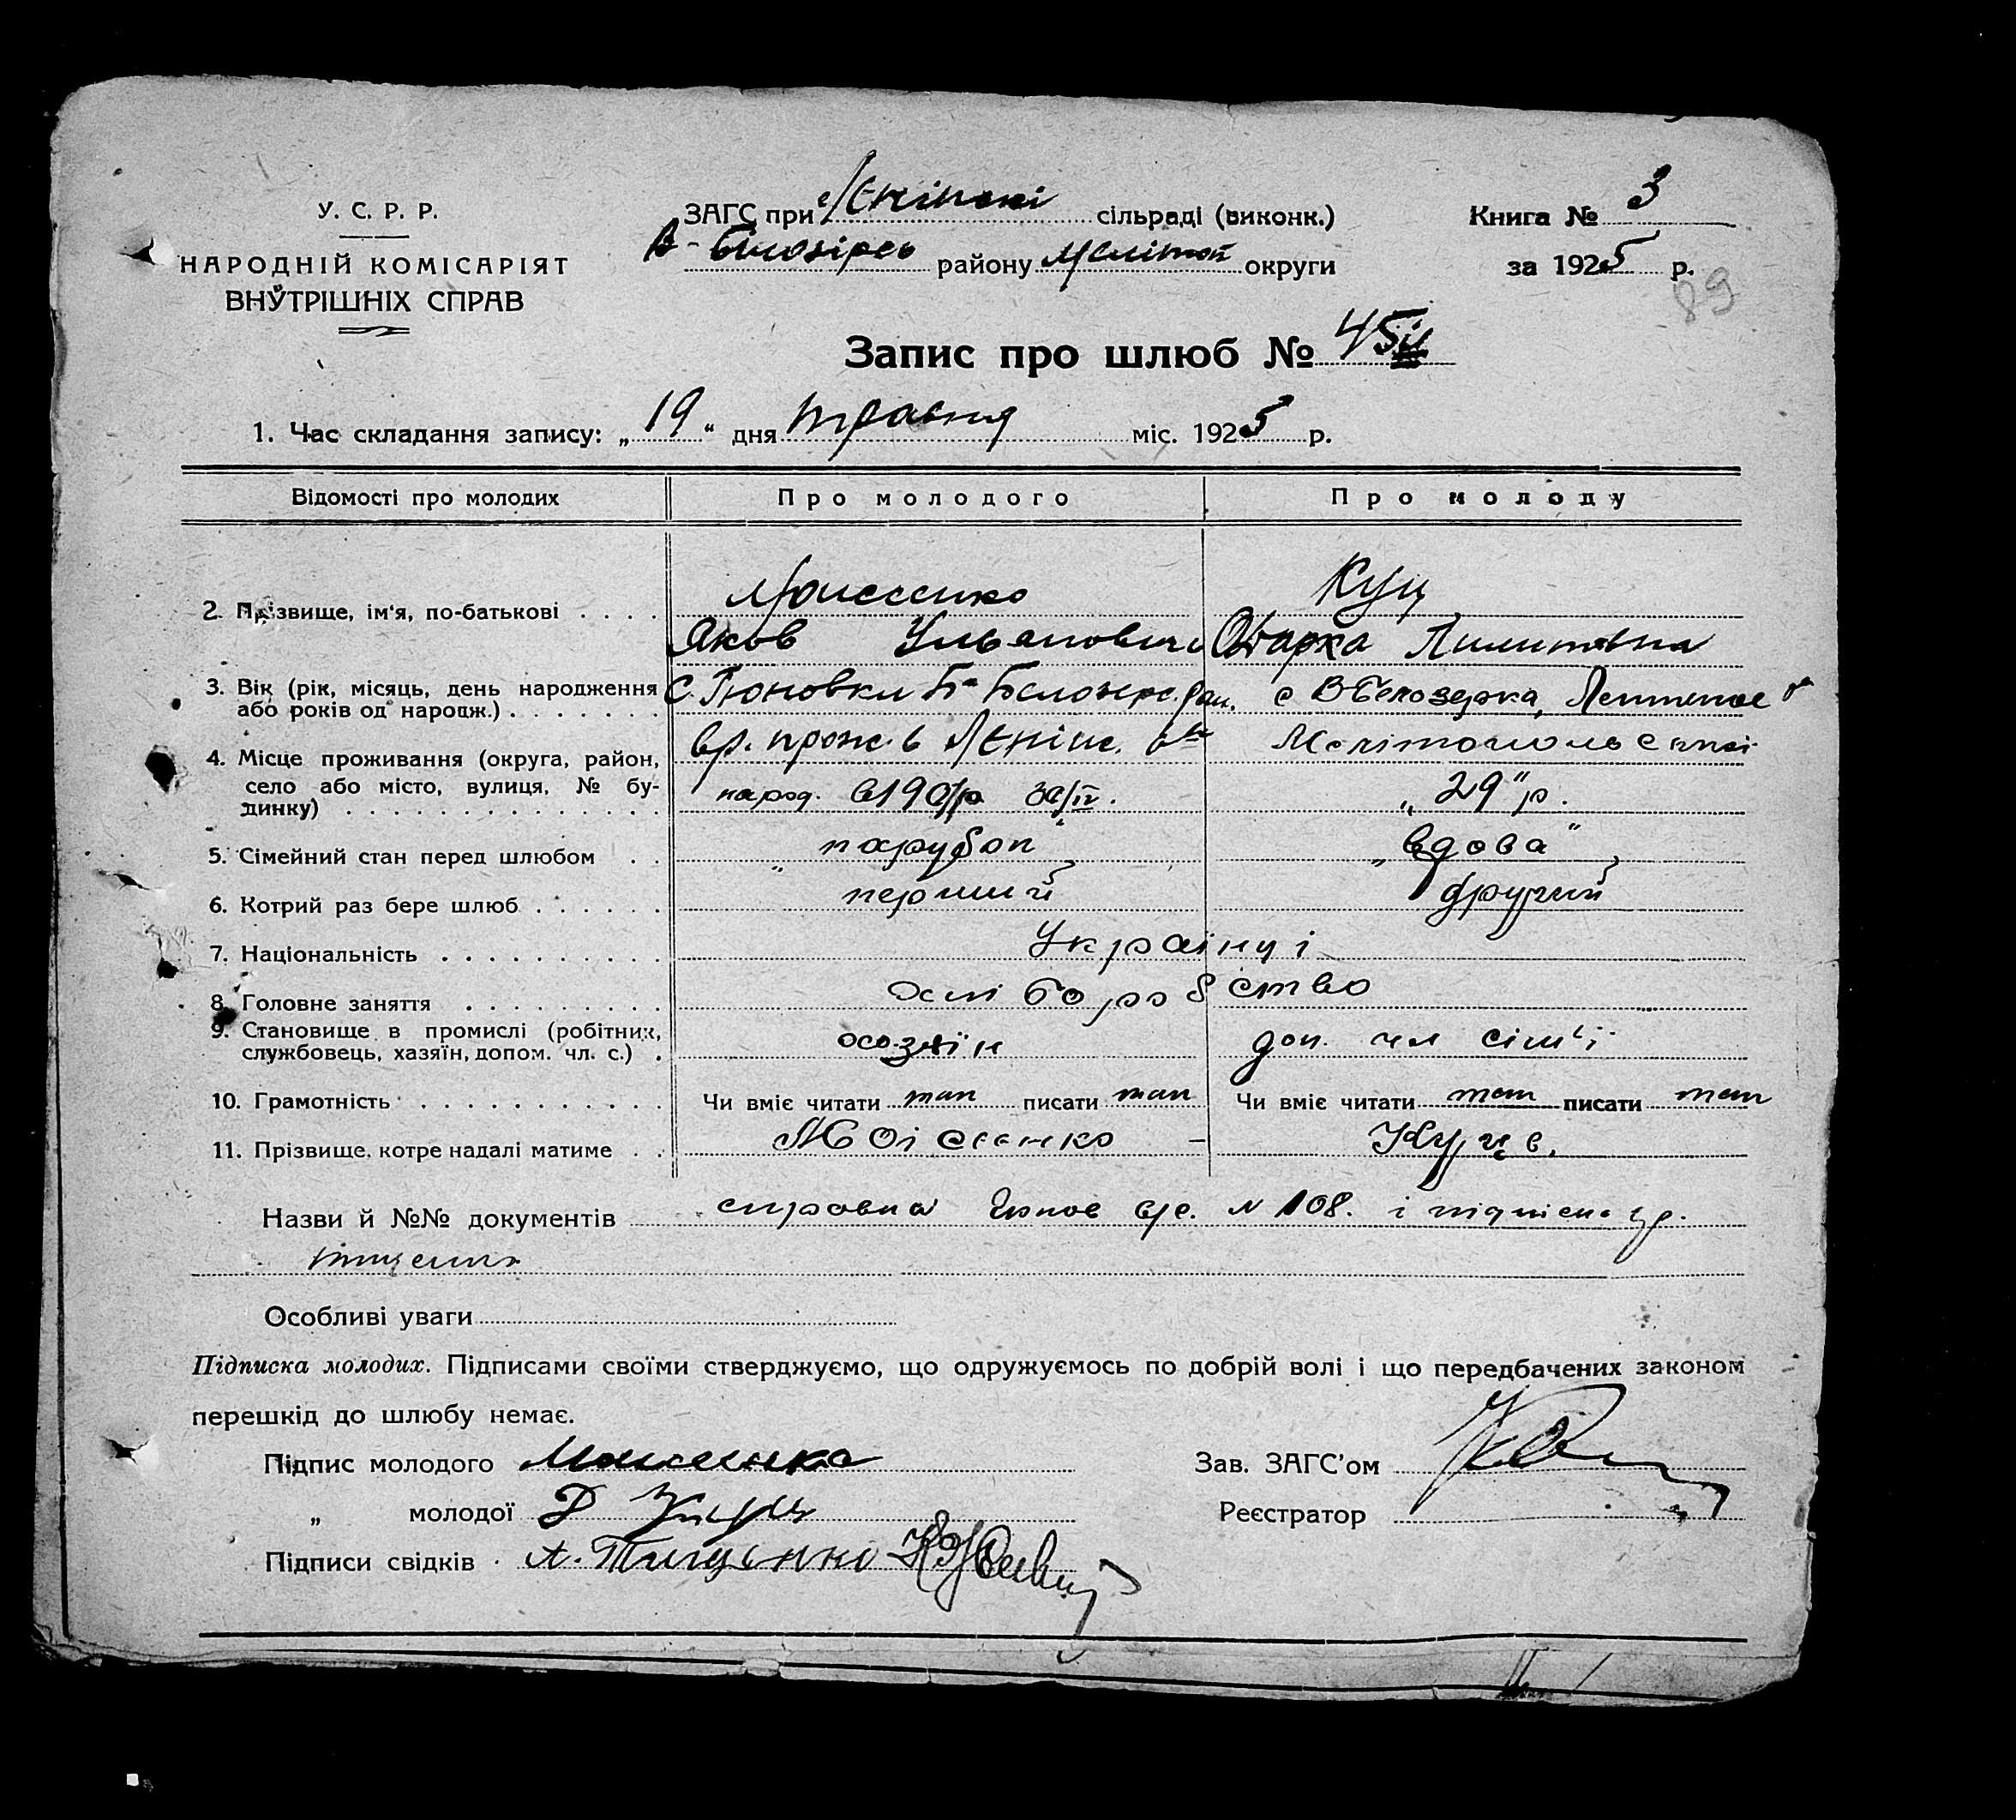 У. С. Р. Р.
НАРОДНІЙ КОМІСАРІЯТ
ВНУТРІШНІХ СПРАВ
ЗАГС при Ленінскі сільраді (виконк.)
В-Білозірсь району Меліт округи
Книга № 3
за 1925 р.
89
Запис про шлюб № 45
1. Час складання запису: „19“ дня травня міс. 1925 р.
Відомості про молодих Про молодого Про молоду
2. Прізвище, ім'я, по-батькові Моисеенко Куц
Яков Ульянович Одарка Пилиповна
3. Вік (рік, місяць, день народження або років од народж.) с. Гюновки Белозерс. рай. с В Белозерка,
4. Місце проживання (округа, район, село або місто, вулиця, № будинку) вр. прож. в Ленінс. Мелітопольскої
народ. в 190 р „29" р.
5. Сімейний стан перед шлюбом „парубок" „вдова"
6. Котрий раз бере шлюб перший другий
7. Національність Українці
8. Головне заняття хліборобство
9. Становище в промислі (робітник, службовець, хазяїн, допом. чл. с.) хазяін доп. чл сімї
10. Грамотність Чи вміє читати так писати так Чи вміє читати так писати так
11. Прізвище, котре надалі матиме Моісеенко –
Назви й №№ документів справка Гюнов № 108. і підписка гр.
Тищенко
Особливі уваги
Підписка молодих. Підписами своїми стверджуємо, що одружуємось по добрій волі і що передбачених законом
перешкід до шлюбу немає.
Підпис молодого Моисеенко Зав. ЗАГС'ом
„ молодої Куц Реєстратор
Підписи свідків Тищенко